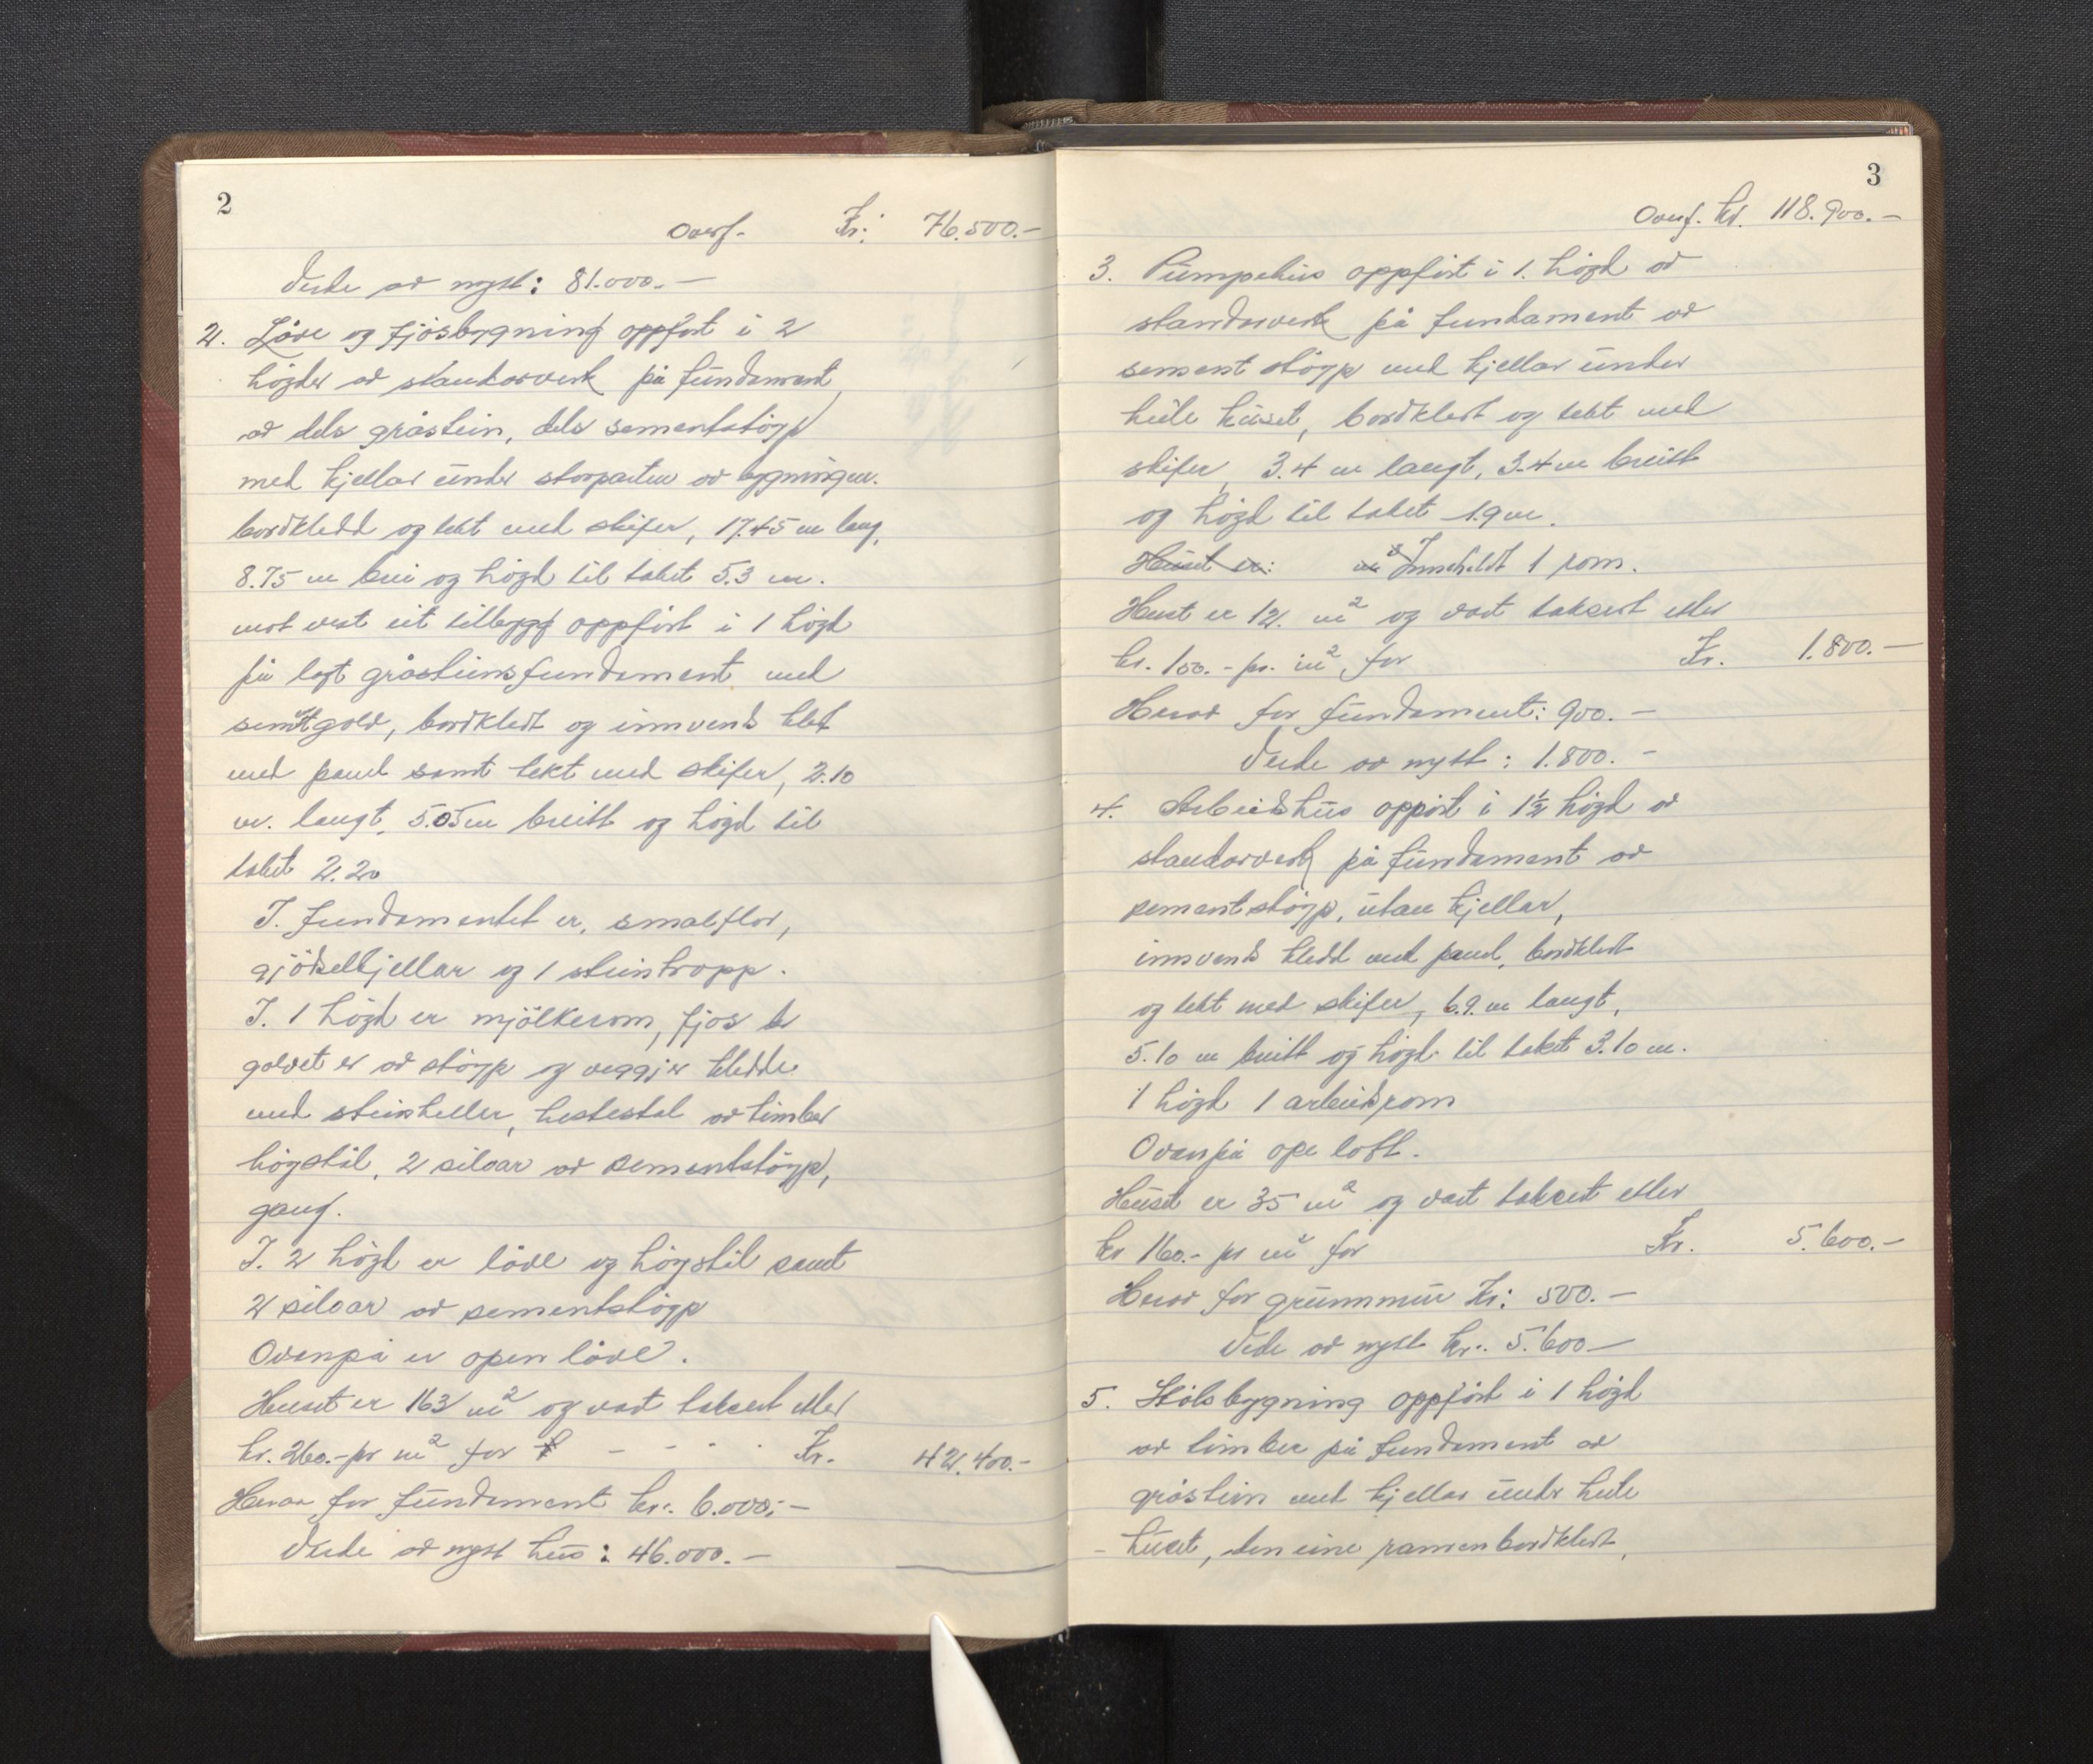 2
Overf. Kr: 76.500.-
Verde av nytt: 81.000.-
2. Löve og fjösbygning oppfört i 2
högder av standarverk på fundament
av dels gråstein, dels sementstöyp
med kjellar under storparten av bygningen.
bordkledd og tekt med skifer, 17.45 m lang,
8.75 m brei og högd til taket 5.3 m.
mot vest eit tillegg oppfört i 1 högd
på lagt gråsteinsfundament med
sementgolv, bordkledt og innvend. kledt
med panel samt tekt med skifer, 2.10
m. langt, 5.05 m breitt og högd til
taket 2.20
I. fundamentet er, smalflor,
gjödselkjellar og 1 steintropp.
I. 1 högd er mjölkerom, fjos der
golvet er av stöyp og veggjer kledde
med steinheller, hestestal av timber
högstål, 2 siloar av sementstöyp,
gang.
I. 2 högd er löve og högstål samt
2 siloar av sementstöyp
Ovanpå er open löve.
Huset er 163 m² og vart taksert etter
kr. 260.- pr m² for - - - - Kr. 42.400.-
Herav for fundament kr. 6.000.-
Verde av nytt hus: 46.000.-
3
Overf. kr. 118.900.-
3. Pumpehus oppfört i 1. högd av
standarverk på fundament av
sement stöyp med kjellar under
heile huset, bordkledt og tekt med
skifer, 3.4 m langt, 3.4 m breitt
og högd til taket 1.9 m.
Huset er: Inneheldt 1 rom.
Huset er 12. m² og vart taksert etter
kr. 150.- pr. m² for Kr. 1.800.-
Herav for fundament: 900.-
Verde av nytt: 1.800.-
4. Arbeidshus oppört i 1½ högd av
standarverk på fundament av
sementstöyp, utan kjellar,
innvend. kledd med panel, bordkledt
og tekt med skifer, 6.9. m langt,
5.10 m breitt og högd til taket 3.10 m.
1 högd 1 arbeidsrom
Ovanpå ope loft.
Huset er 35 m² og vart taksert etter
kr 160.- pr m² for Kr. 5.600.-
Herav for grunnmur Kr: 500.-
Verde av nytt kr.. 5.600-
5. Stölsbygning oppfört i 1 högd
av timber på fundament av
gråstein med kjellar under heile
huset, den eine ramen bordkledt,